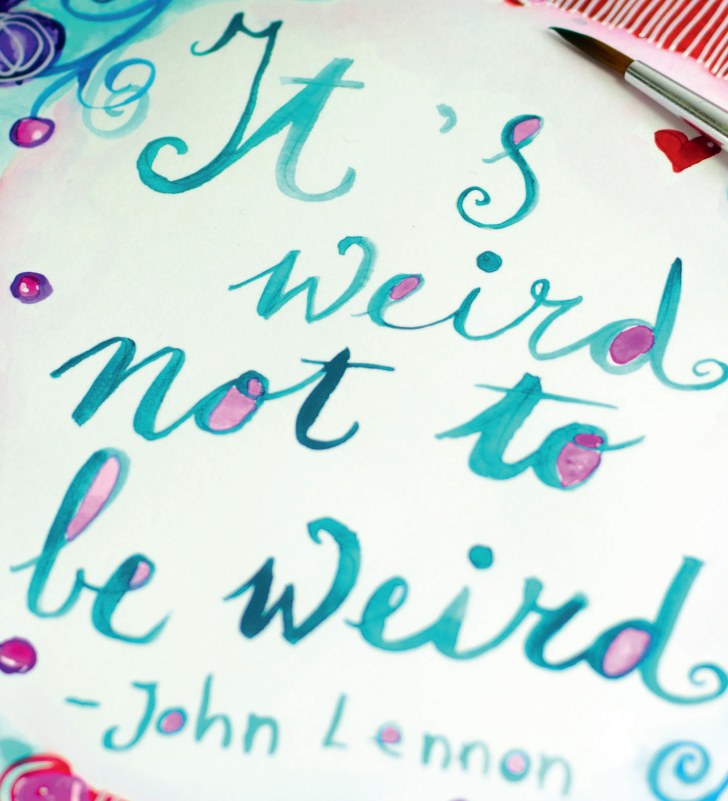 It's
weird
not to
be weird
-John Lennon